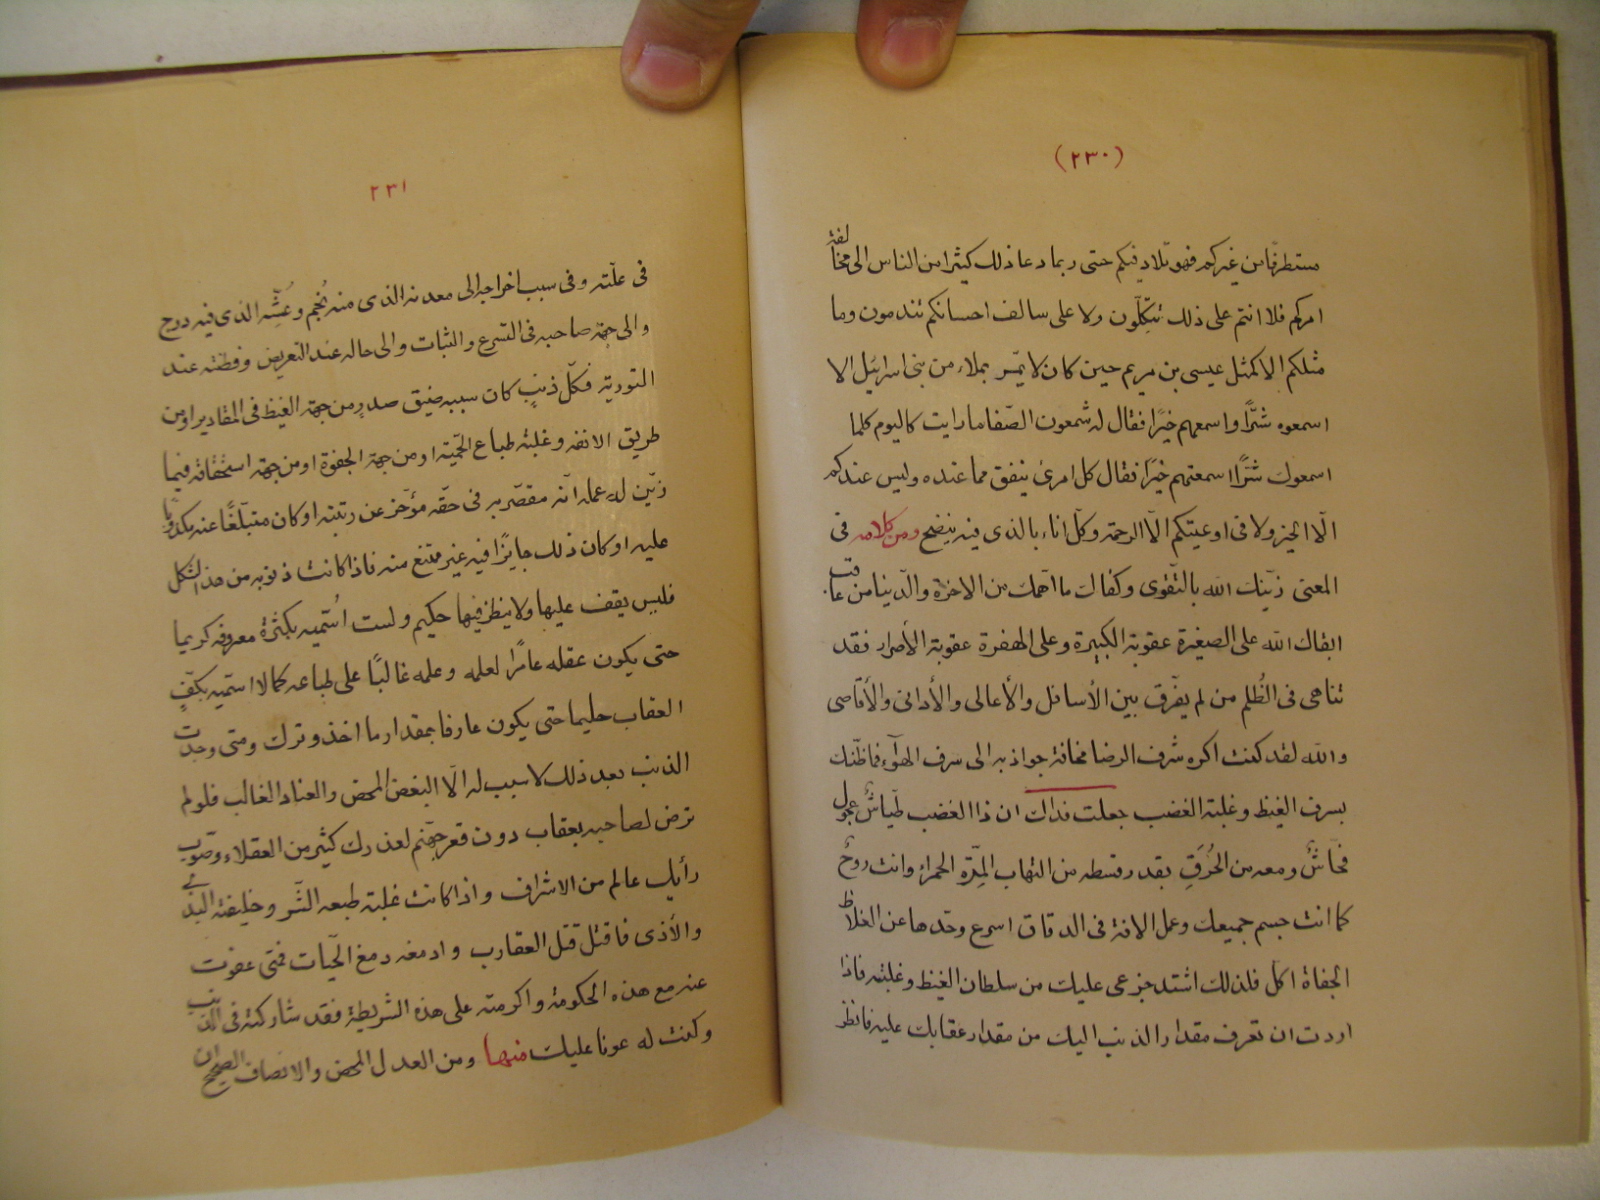 (٢٣٠)
مستطرفا من غيركم فهو تلاد فيكم حتى ربما دعا ذلك كثيرا من الناس الى مخالفة
امركم فلا انتم على ذلك تنكلون ولا على سالف احسانكم تندمون وما
مثلكم الا كمثل عيسى بن مريم حين كان لا يمّر بملاء من بنى اسرئيل الا
اسمعوه شرًّا واسمعهم خيرًا فقال له شمعون الصّفا ما رايت كاليوم كلما
اسمعوك شرًّا اسمعتهم خيرًا فقال كل امرئ ينفق مما عنده وليس عندكم
الّا الخير ولا فى اوعيتكم الّا الرحمة وكل اناء بالذى فيه ينضح ومن كلامه فى
المعنى زيّنك الله بالتّقوى وكفاك ما اهمك من الاخرة والدّنيا من عاقب
ابقاك الله على الصغيرة عقوبة الكبيرة وعلى الهفوة عقوبة الأصرار فقد
تناهى فى الظُلم من لم يفّرق بين الأسافل والأعالى والأدانى والأقاصى
والله لقد كنت اكره شرف الرضا مخافة جواذبه الى سرف الهوآء فما ظنك
بسرف الغيظ وغلبة الغضب جعلت فداك ان ذا الغضب طيّاشٌ عجول
فحّاشٌ ومعه من الخُرَقِ بقدر قسطه من التهاب المِرّة الحمراء وانت روحٌ
كما انت جسم جميعك وعمل الافة فى الدقاق اسرع وحّدها عن الغلاظ
الجفاة اكل فلذلك اشتد جزعى عليك من سلطان الغيظ وغلبته فاذا
اردت ان تعرف مقدار الذنب اليك من مقدار عقابك عليه فانظر
٢٣١
فى علّته وفى سبب اخراجه الى معدنه الذى منه نُجم وعُشِّه الذى فيه درج
والى جهة صاحبه فى التسرع والثبات والى حاله عند التعريض وفطنته عند
التورية فكلّ ذنبٍ كان سببه ضيق صدرٍ من جهة الغيظ فى المقادير او من
طريق الانفه وغلبة طباع الحّمية او من جهة الجفوة او من جهة استحقاقه فيما
زيّن له عمله انّه مقصّر به فى حقّه مؤخّر عن رتبته او كان متبلّغًا عنه مكذوبا
عليه او كان ذلك جايزًا فيه غير ممتنع منه فاذا كانت ذنوبه من هذا الشكل
فليس يقف عليها ولا ينظر فيها حكيم ولست اُسّميه بكثرة معروفه كريما
حتى يكون عقله عامرًا لعلمه وعلمه غالبًا على طباعه كما لا اسّميه بكفّ
العقاب حليما حتى يكون عارفا بمقدار ما اخذ وترك ومتى وجدت
الذنب بعد ذلك لا سبب له الّا البغض المحض والعناد الغالب فلو لم
ترض لصاحبه بعقاب دون قعر جهّنم لعذرك كثير من العقلاء وصّوب
رأيك عالم من الاشراف واذا كانت غلبة طبعه الشّر وخليفته البذى
والأذى فاقتل قتل العقارب وادمغه دمغ الحّيات فمتى عفوت
عنه مع هذه الحكومة واكرمته على هذه الشريطة فقد شاركته فى الذنب
وكنت له عونا عليك منها ومن العدل المحض والانصاف الصحيح ان